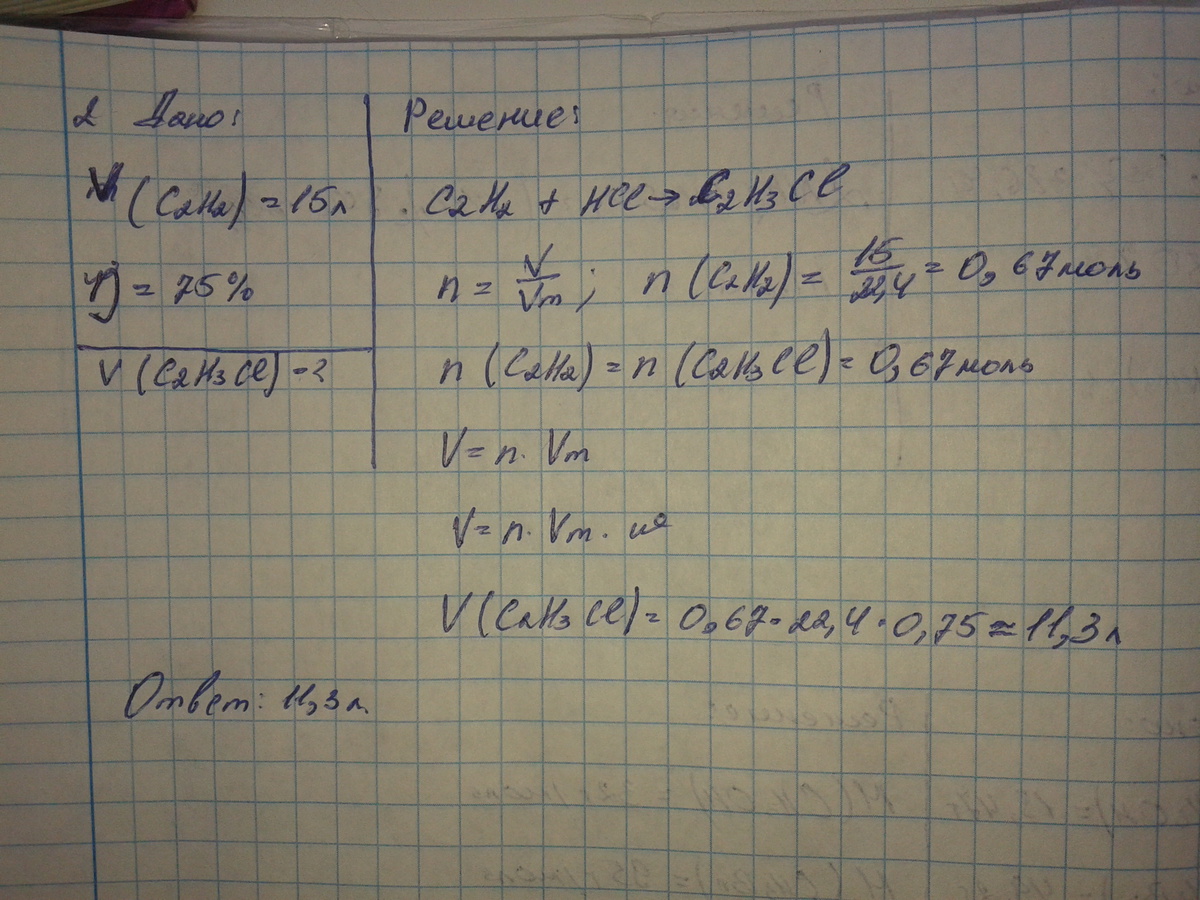 2 Дано:
V (C2H2) = 15л
η = 75%
V (C2H3Cl) - ?
Решение:
C2H2 + HCl → C2H3Cl
n = V/Vm ; n (C2H2) = 15/22,4 = 0,67 моль
n (C2H2) = n (C2H3Cl) = 0,67 моль
V = n · Vm
V = n · Vm ·
V (C2H3Cl) = 0,67 · 22,4 · 0,75 ≈ 11,3 л
Ответ: 11,3 л
Решение: